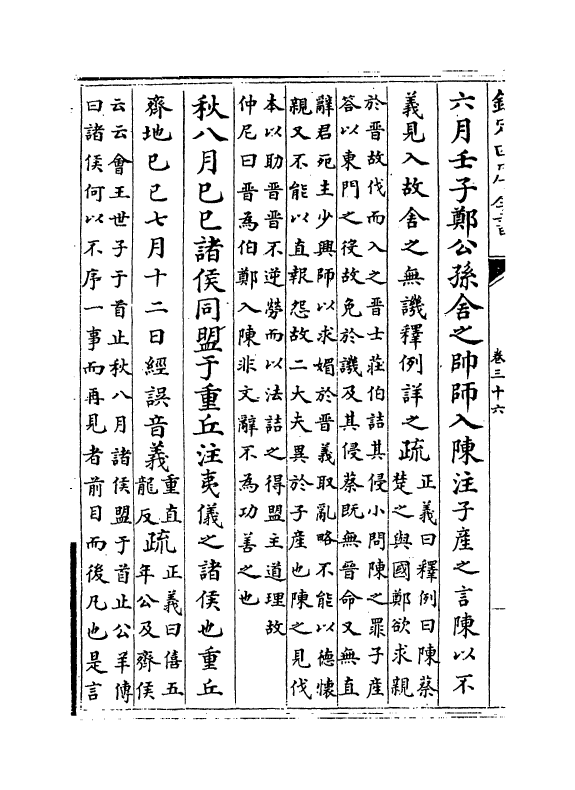 欽定四庫全書
卷三十六
六月壬子鄭公孫舍之帥師入陳注子產之言陳以不
義見入故舍之無譏釋例詳之疏
正義曰釋例曰陳蔡
楚之與國鄭欲求親
於晉故伐而入之晉士莊伯詰其侵小問陳之罪子產
答以東門之役故免於譏及其侵蔡既無晉命又無直
辭君死主少興師以求媚於晉義取亂略不能以德懷
親又不能以直報怨故二大夫異於子產也陳之見伐
本以助晉晉不逆勞而以法詰之得盟主道理故
仲尼曰晉為伯鄭入陳非文辭不為功善之也
秋八月己巳諸侯同盟于重丘注夷儀之諸侯也重丘
齊地己巳七月十二日經誤音義
重直
龍反
疏
正義曰僖五
年公及齊侯
云云會王世子于首止秋八月諸侯盟于首止公羊傳
曰諸侯何以不序一事而再見者前目而後凡也是言